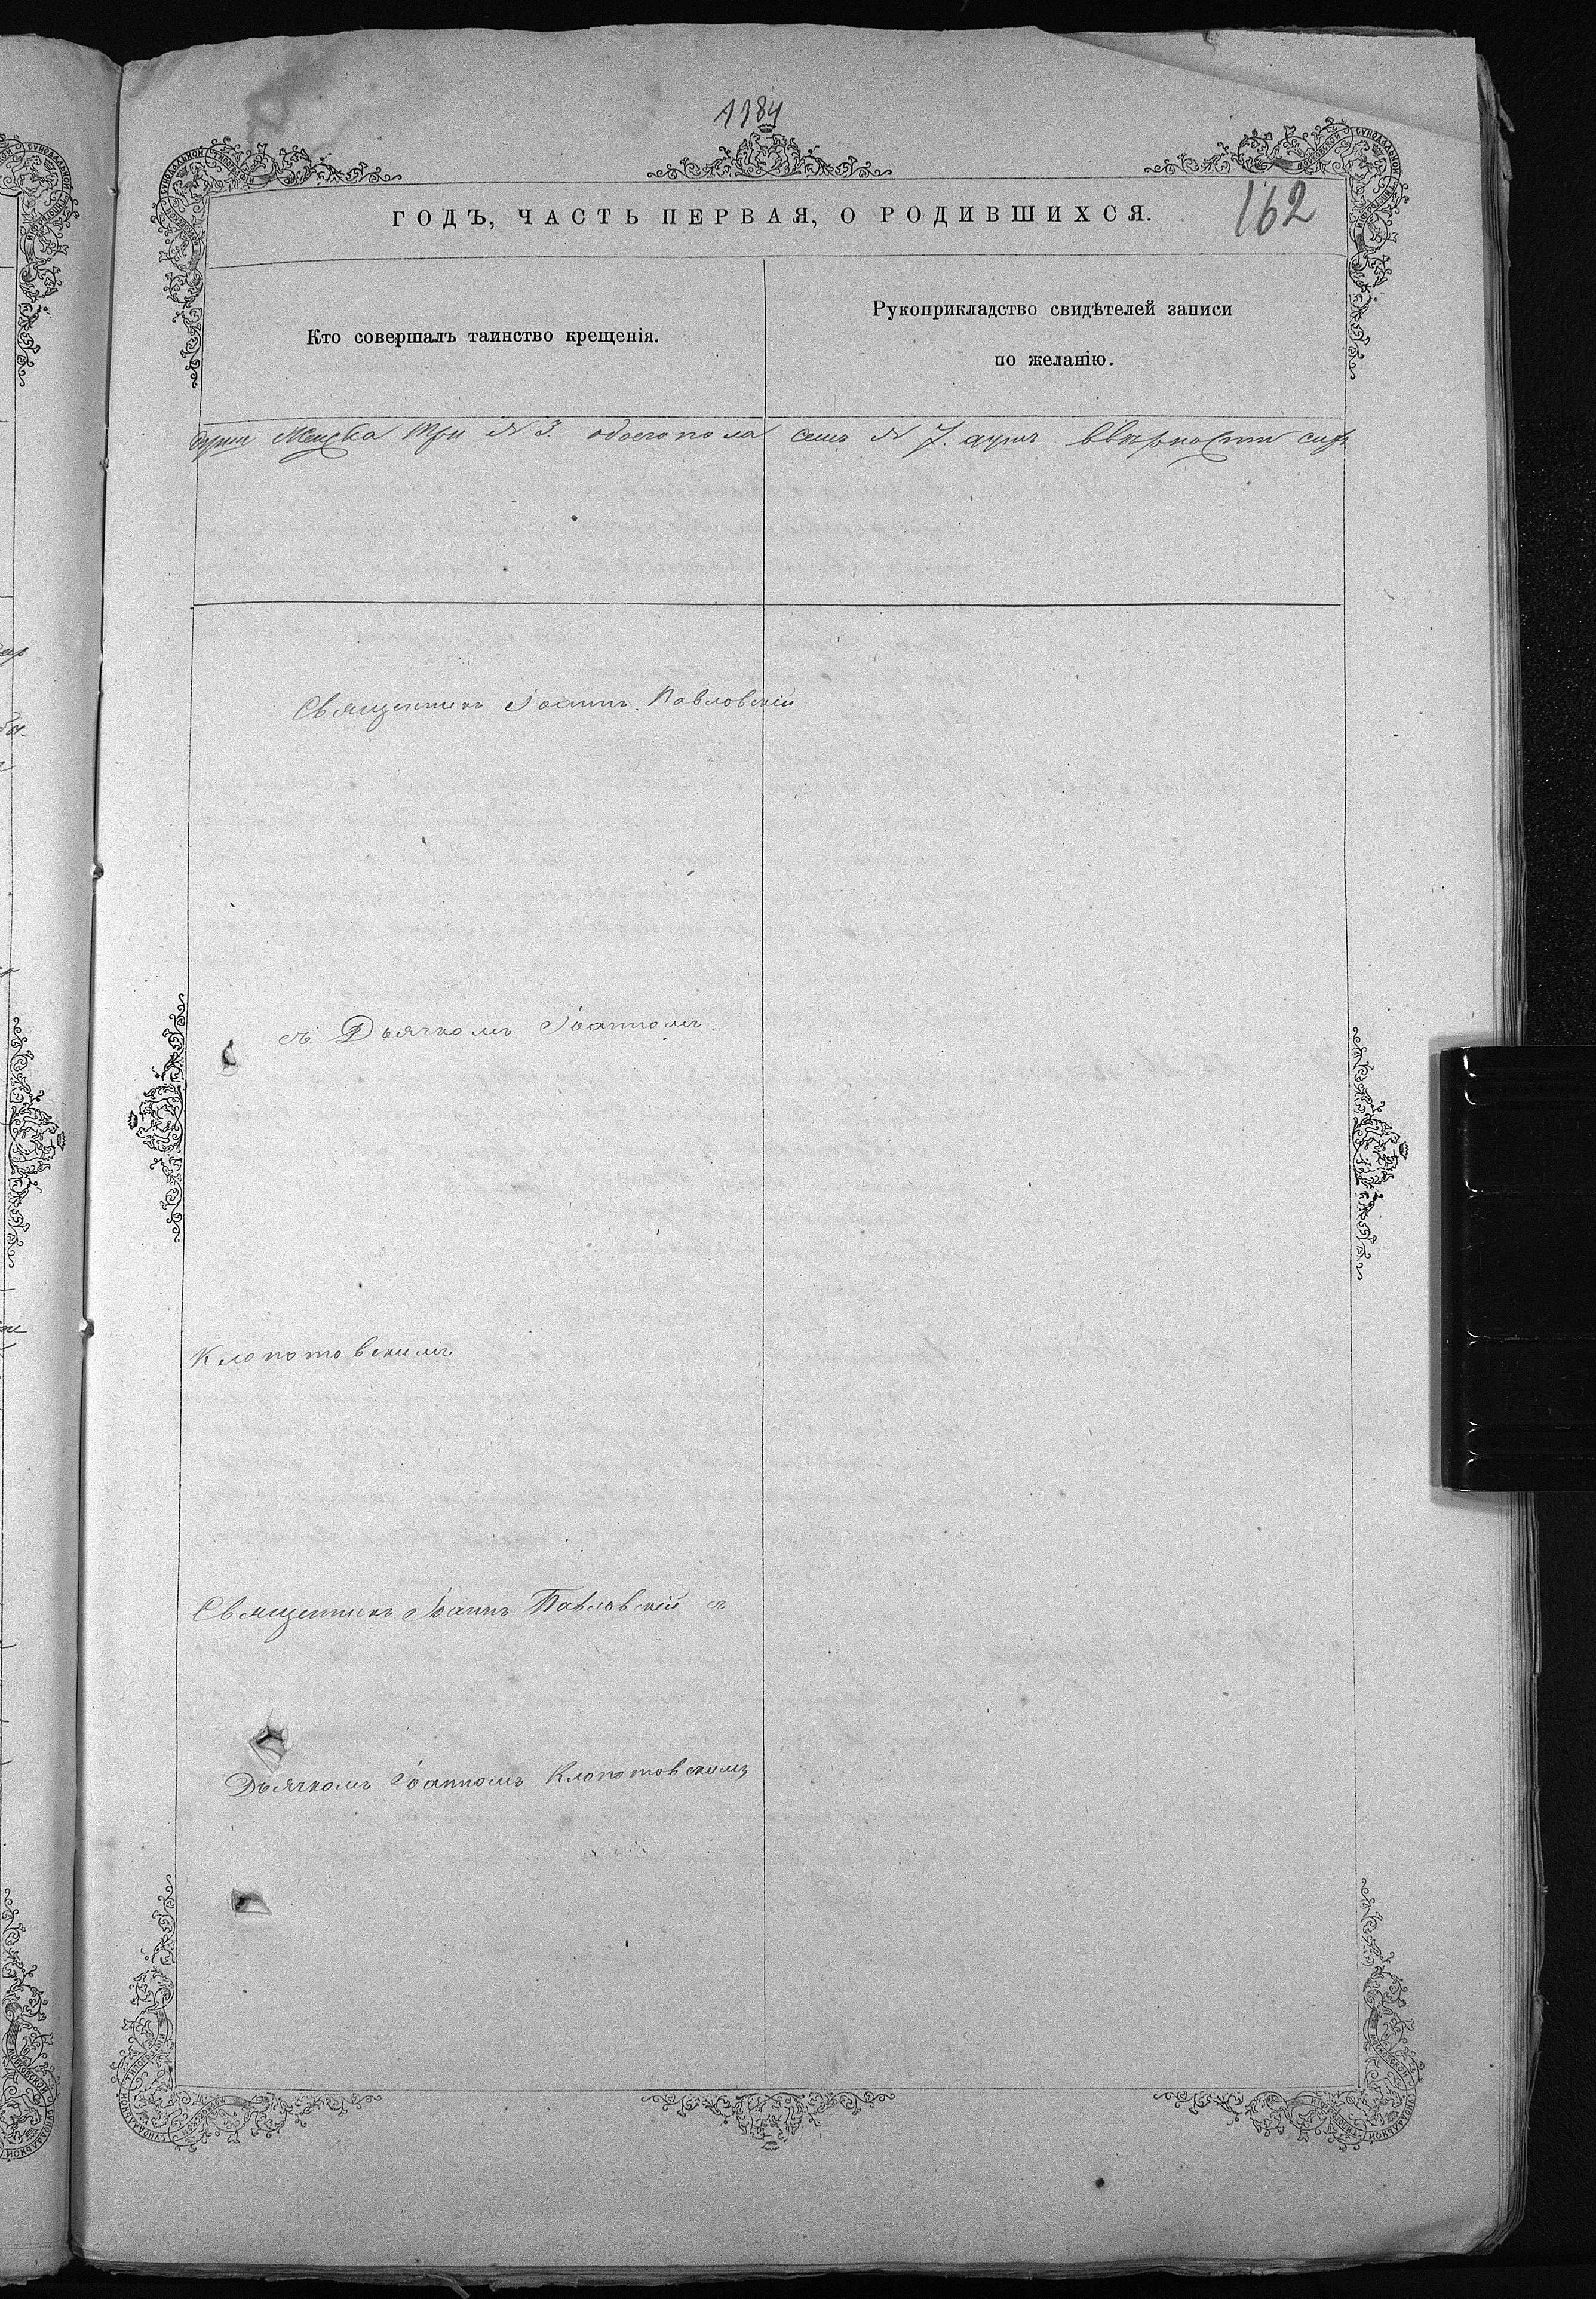 1384
162
ГОДЪ, ЧАСТЬ ПЕРВАЯ, О РОДИВШИХСЯ.
Кто совершалъ таинство крещенія.
Рукоприкладство свидѣтелей записи
по желанію.
души Женска три № 3. обоего пола семь № 7. душъ ввѣрности
Священникъ Іоаннъ Павловскій
съ Дьячкомъ Іоанномъ
Клопотовскимъ
Священникъ Іоаннъ Павловскій съ
Дьячкомъ Іоанномъ Клопотовскимъ